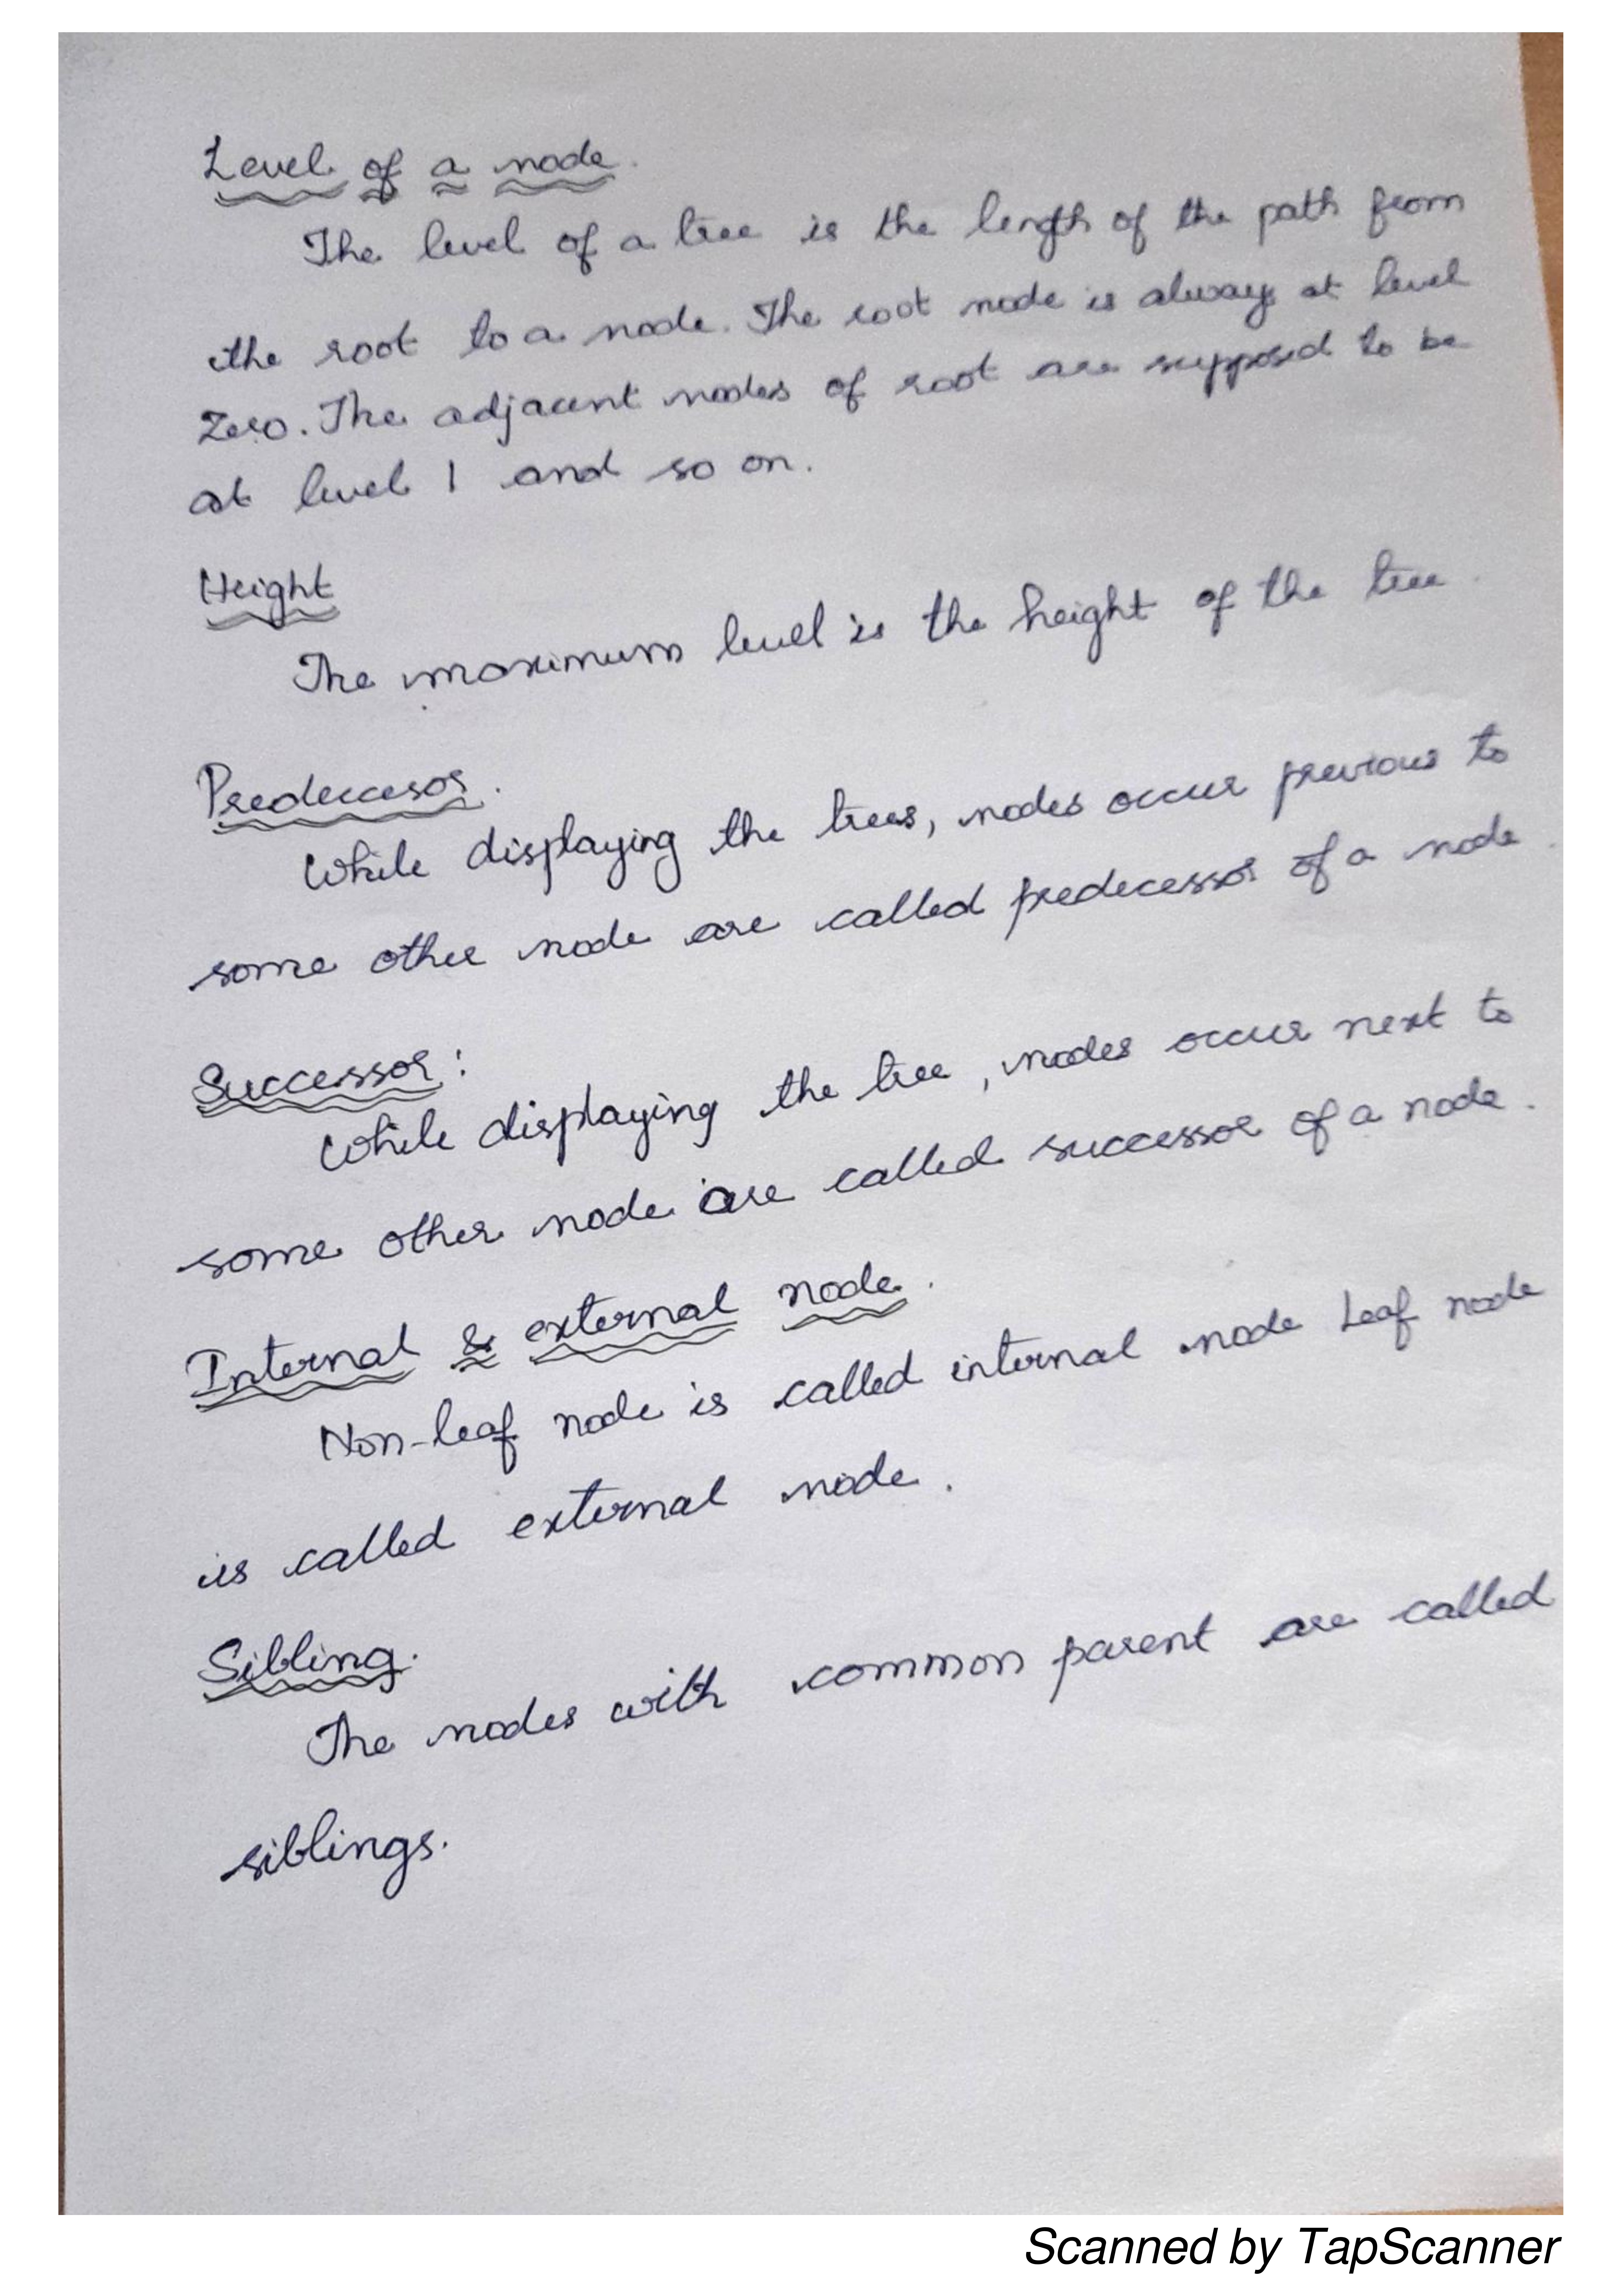 Level of a node.
The level of a tree is the length of the path from
the root to a node. The root node is always at level
Zero. The adjacent nodes of root are supposed to be
at level 1 and so on.
Height
The maximum level is the height of the tree.
Predeccesor.
While displaying the trees, nodes occur previous to
some other node are called predecessor of a node.
Successor:
While displaying the tree, nodes occur next to
some other node are called successor of a node.
Internal & external node.
Non-leaf node is called internal node Leaf node
is called external node.
Sibling.
The nodes with common parent are called
siblings.
Scanned by TapScanner